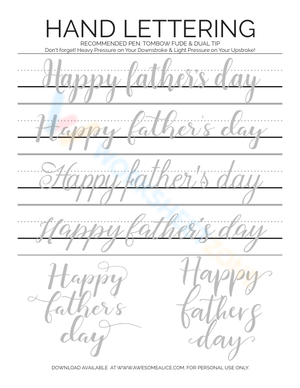 HAND LETTERING
RECOMMENDED PEN: TOMBOW FUDE & DUAL TIP
Don't forget! Heavy Pressure on Your Downstroke & Light Pressure on Your Upstroke!
Happy father's day
Happy father's day
Happy father's day
Happy father's day
Happy
father's
day
Happy
fathers
day
DOWNLOAD AVAILABLE AT WWW.AWESOMEALICE.COM. FOR PERSONAL USE ONLY.